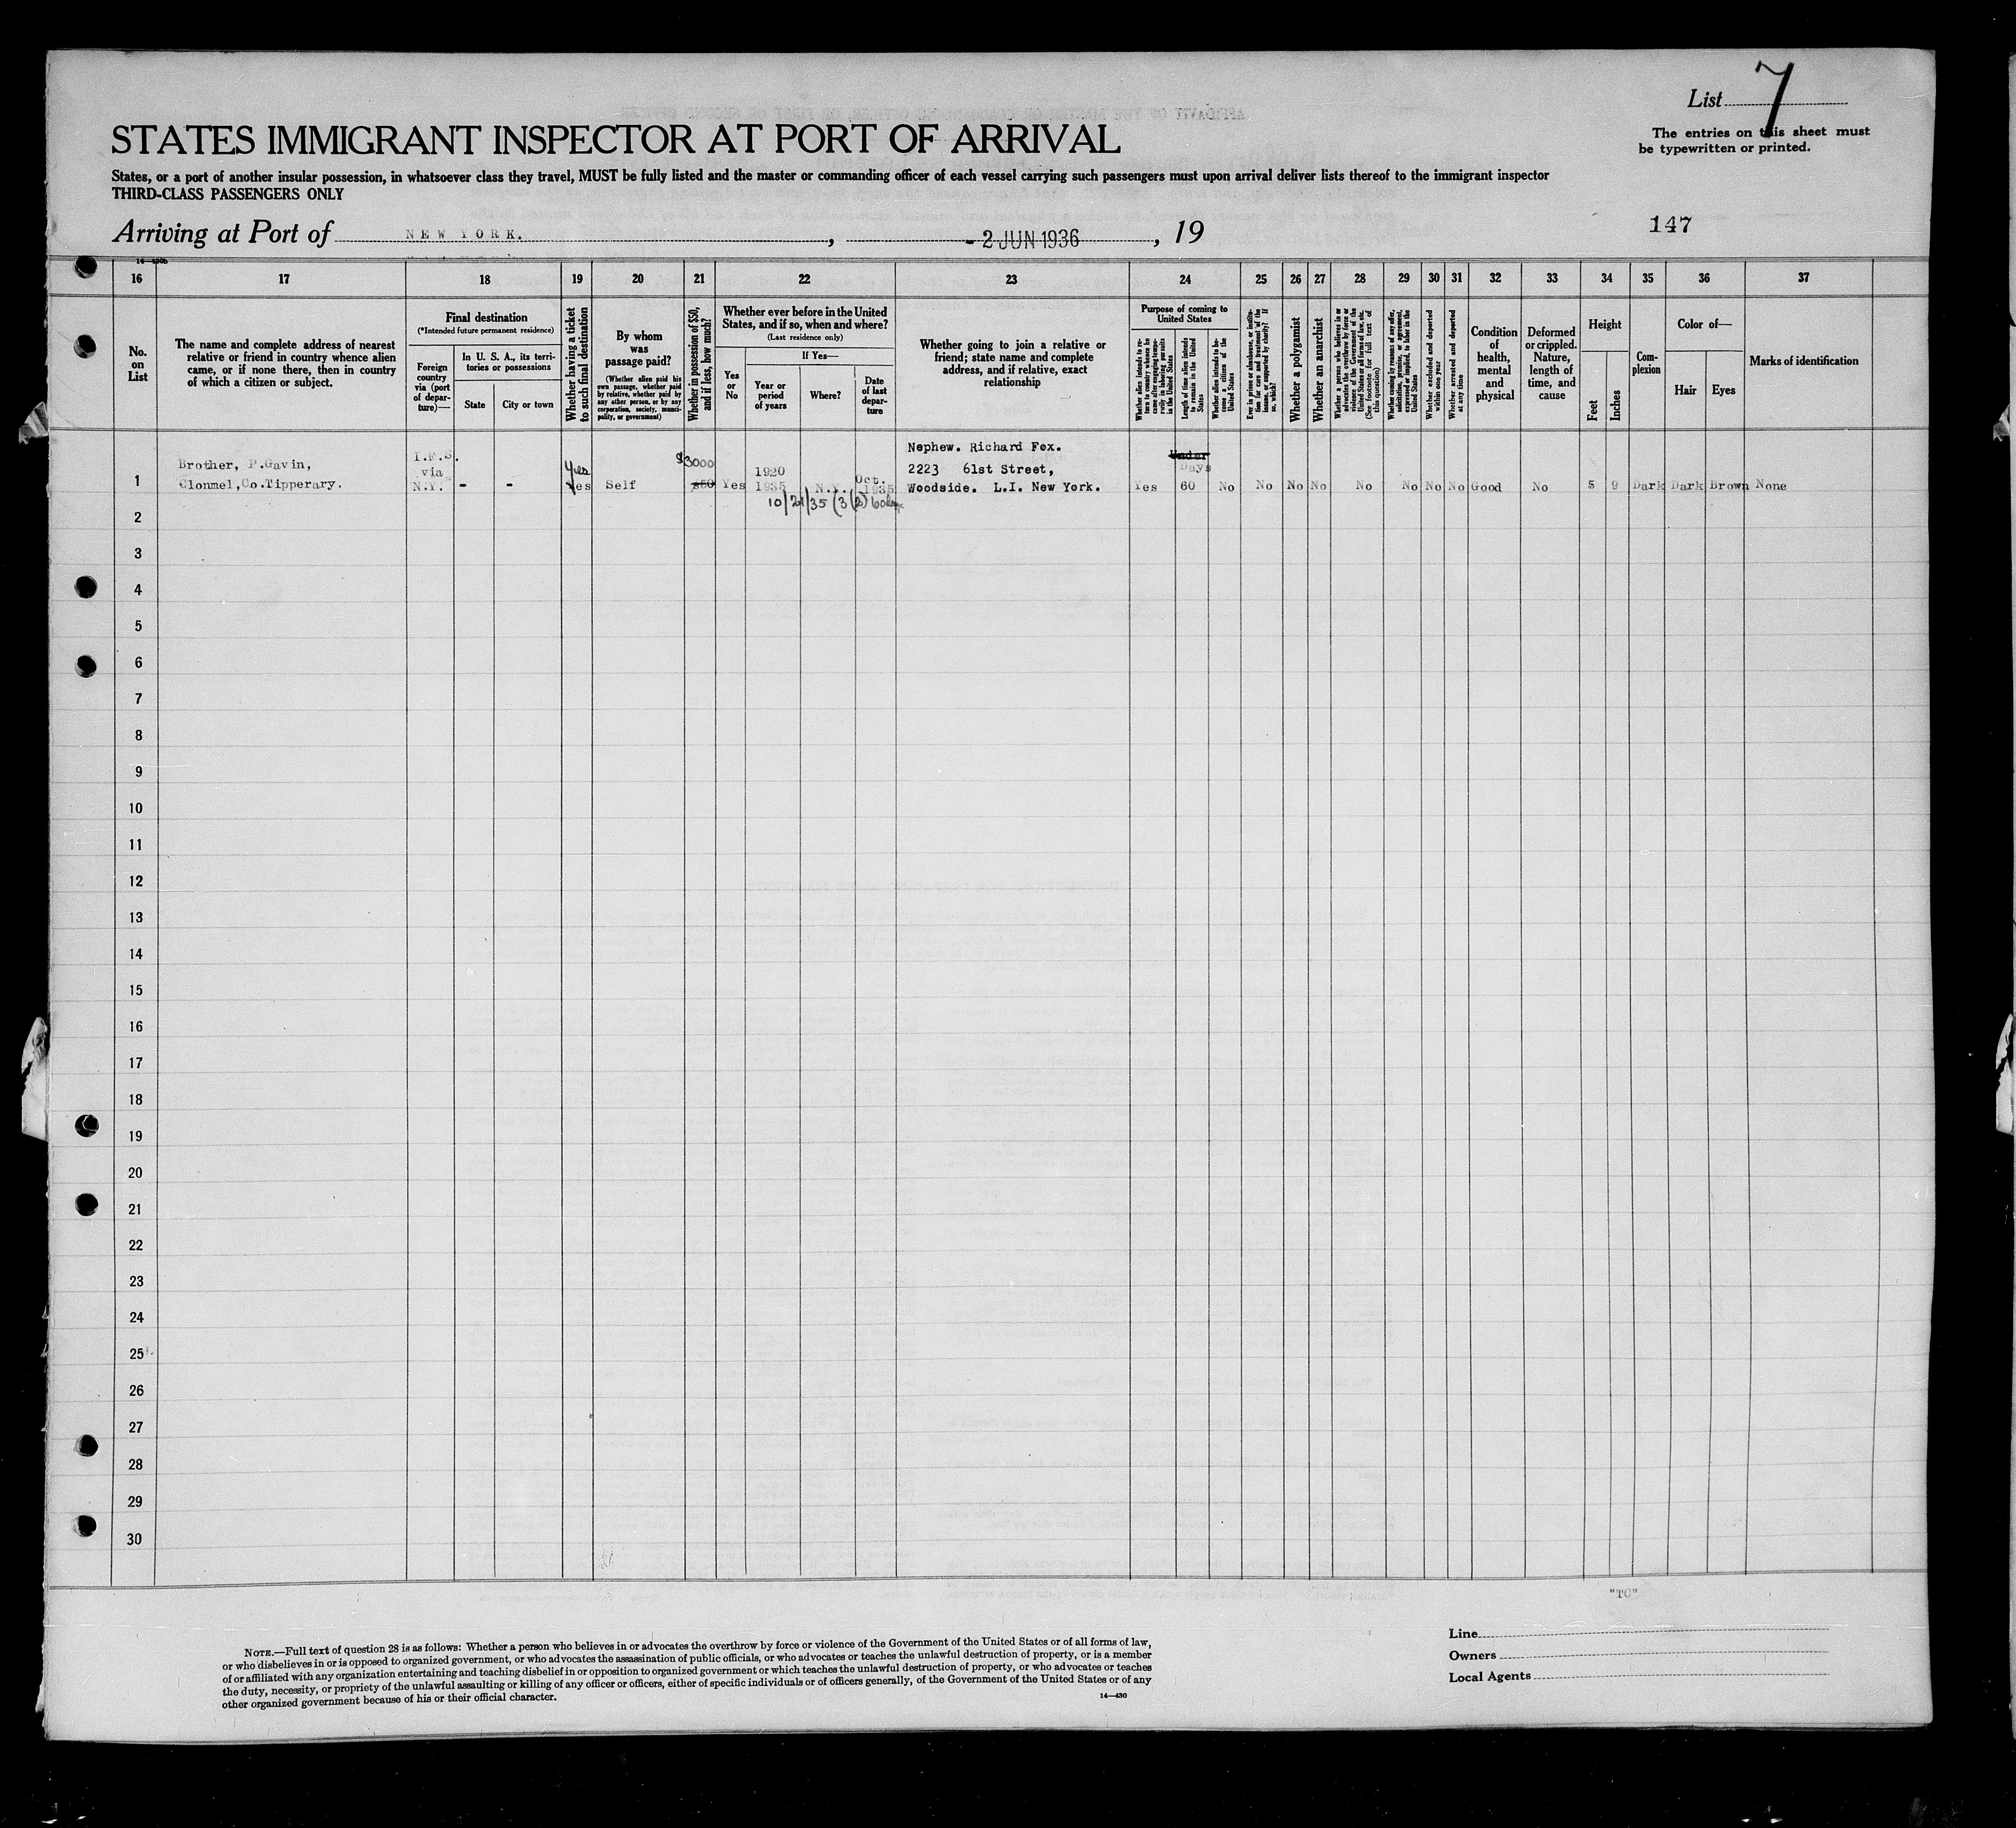 List 7
The entries on this sheet must
be typewritten or printed.
STATES IMMIGRANT INSPECTOR AT PORT OF ARRIVAL
States, or a port of another insular possession, in whatsoever class they travel, MUST be fully listed and the master or commanding officer of each vessel carrying such passengers must upon arrival deliver lists thereof to the immigrant inspector
THIRD-CLASS PASSENGERS ONLY
Arriving at Port of NEW YORK. , - 2 JUN 1936 , 19
147
16 17 18 19 20 21 22 23 24 25 26 27 28 29 30 31 32 33 34 35 36 37
No.
on
List
The name and complete address of nearest
relative or friend in country whence alien
came, or if none there, then in country
of which a citizen or subject.
Final destination
(*Intended future permanent residence)
Foreign
country
via (port
of depar-
ture)—
In U. S. A., its terri-
tories or possessions
State
City or town
Whether having a ticket
to such final destination
By whom
was
passage paid?
(Whether alien paid his
own passage, whether paid
by relative, whether paid by
any other person, or by any
corporation, society, munici-
pality, or government)
Whether in possession of $50,
and if less, how much?
Whether ever before in the United
States, and if so, when and where?
(Last residence only)
Yes
or
No
If Yes—
Year or
period
of years
Where?
Date
of last
depar-
ture
Whether going to join a relative or
friend; state name and complete
address, and if relative, exact
relationship
Purpose of coming to
United States
Whether alien intends to re-
turn to country whence he
came after engaging tempo-
rarily in laboring pursuits
in the United States
Length of time alien intends
to remain in the United
States
Whether alien intends to be-
come a citizen of the
United States
Ever in prison or almshouse, or institu-
tion for care and treatment of the
insane, or supported by charity? If
so, which?
Whether a polygamist
Whether an anarchist
Whether a person who believes in or
advocates the overthrow by force or
violence of the Government of the
United States or all forms of law, etc.
(See footnote for full text of
this question)
Whether coming by reason of any offer,
solicitation, promise, or agreement,
expressed or implied, to labor in the
United States
Whether excluded and deported
within one year
Whether arrested and deported
at any time
Condition
of
health,
mental
and
physical
Deformed
or crippled.
Nature,
length of
time, and
cause
Height
Feet
Inches
Com-
plexion
Color of—
Hair
Eyes
Marks of identification
1
Brother, P.Gavin,
Clonmel,Co.Tipperary.
I.F.S.
via
N.Y.
- -
Yes
Yes
Self
$3000
$50
Yes
1920
1935
N.Y.
Oct.
1935
10/21/35
Nephew. Richard Fox.
2223 61st Street,
Woodside. L.I. New York.
Yes
Under
Days
60
No No No No No No No No Good No 5 9 Dark Dark Brown None
2
3
4
5
6
7
8
9
10
11
12
13
14
15
16
17
18
19
20
21
22
23
24
25
26
27
28
29
30
"TC"
NOTE.—Full text of question 28 is as follows: Whether a person who believes in or advocates the overthrow by force or violence of the Government of the United States or of all forms of law,
or who disbelieves in or is opposed to organized government, or who advocates the assassination of public officials, or who advocates or teaches the unlawful destruction of property, or is a member
of or affiliated with any organization entertaining and teaching disbelief in or opposition to organized government or which teaches the unlawful destruction of property, or who advocates or teaches
the duty, necessity, or propriety of the unlawful assaulting or killing of any officer or officers, either of specific individuals or of officers generally, of the Government of the United States or of any
other organized government because of his or their official character.
14—430
Line
Owners
Local Agents